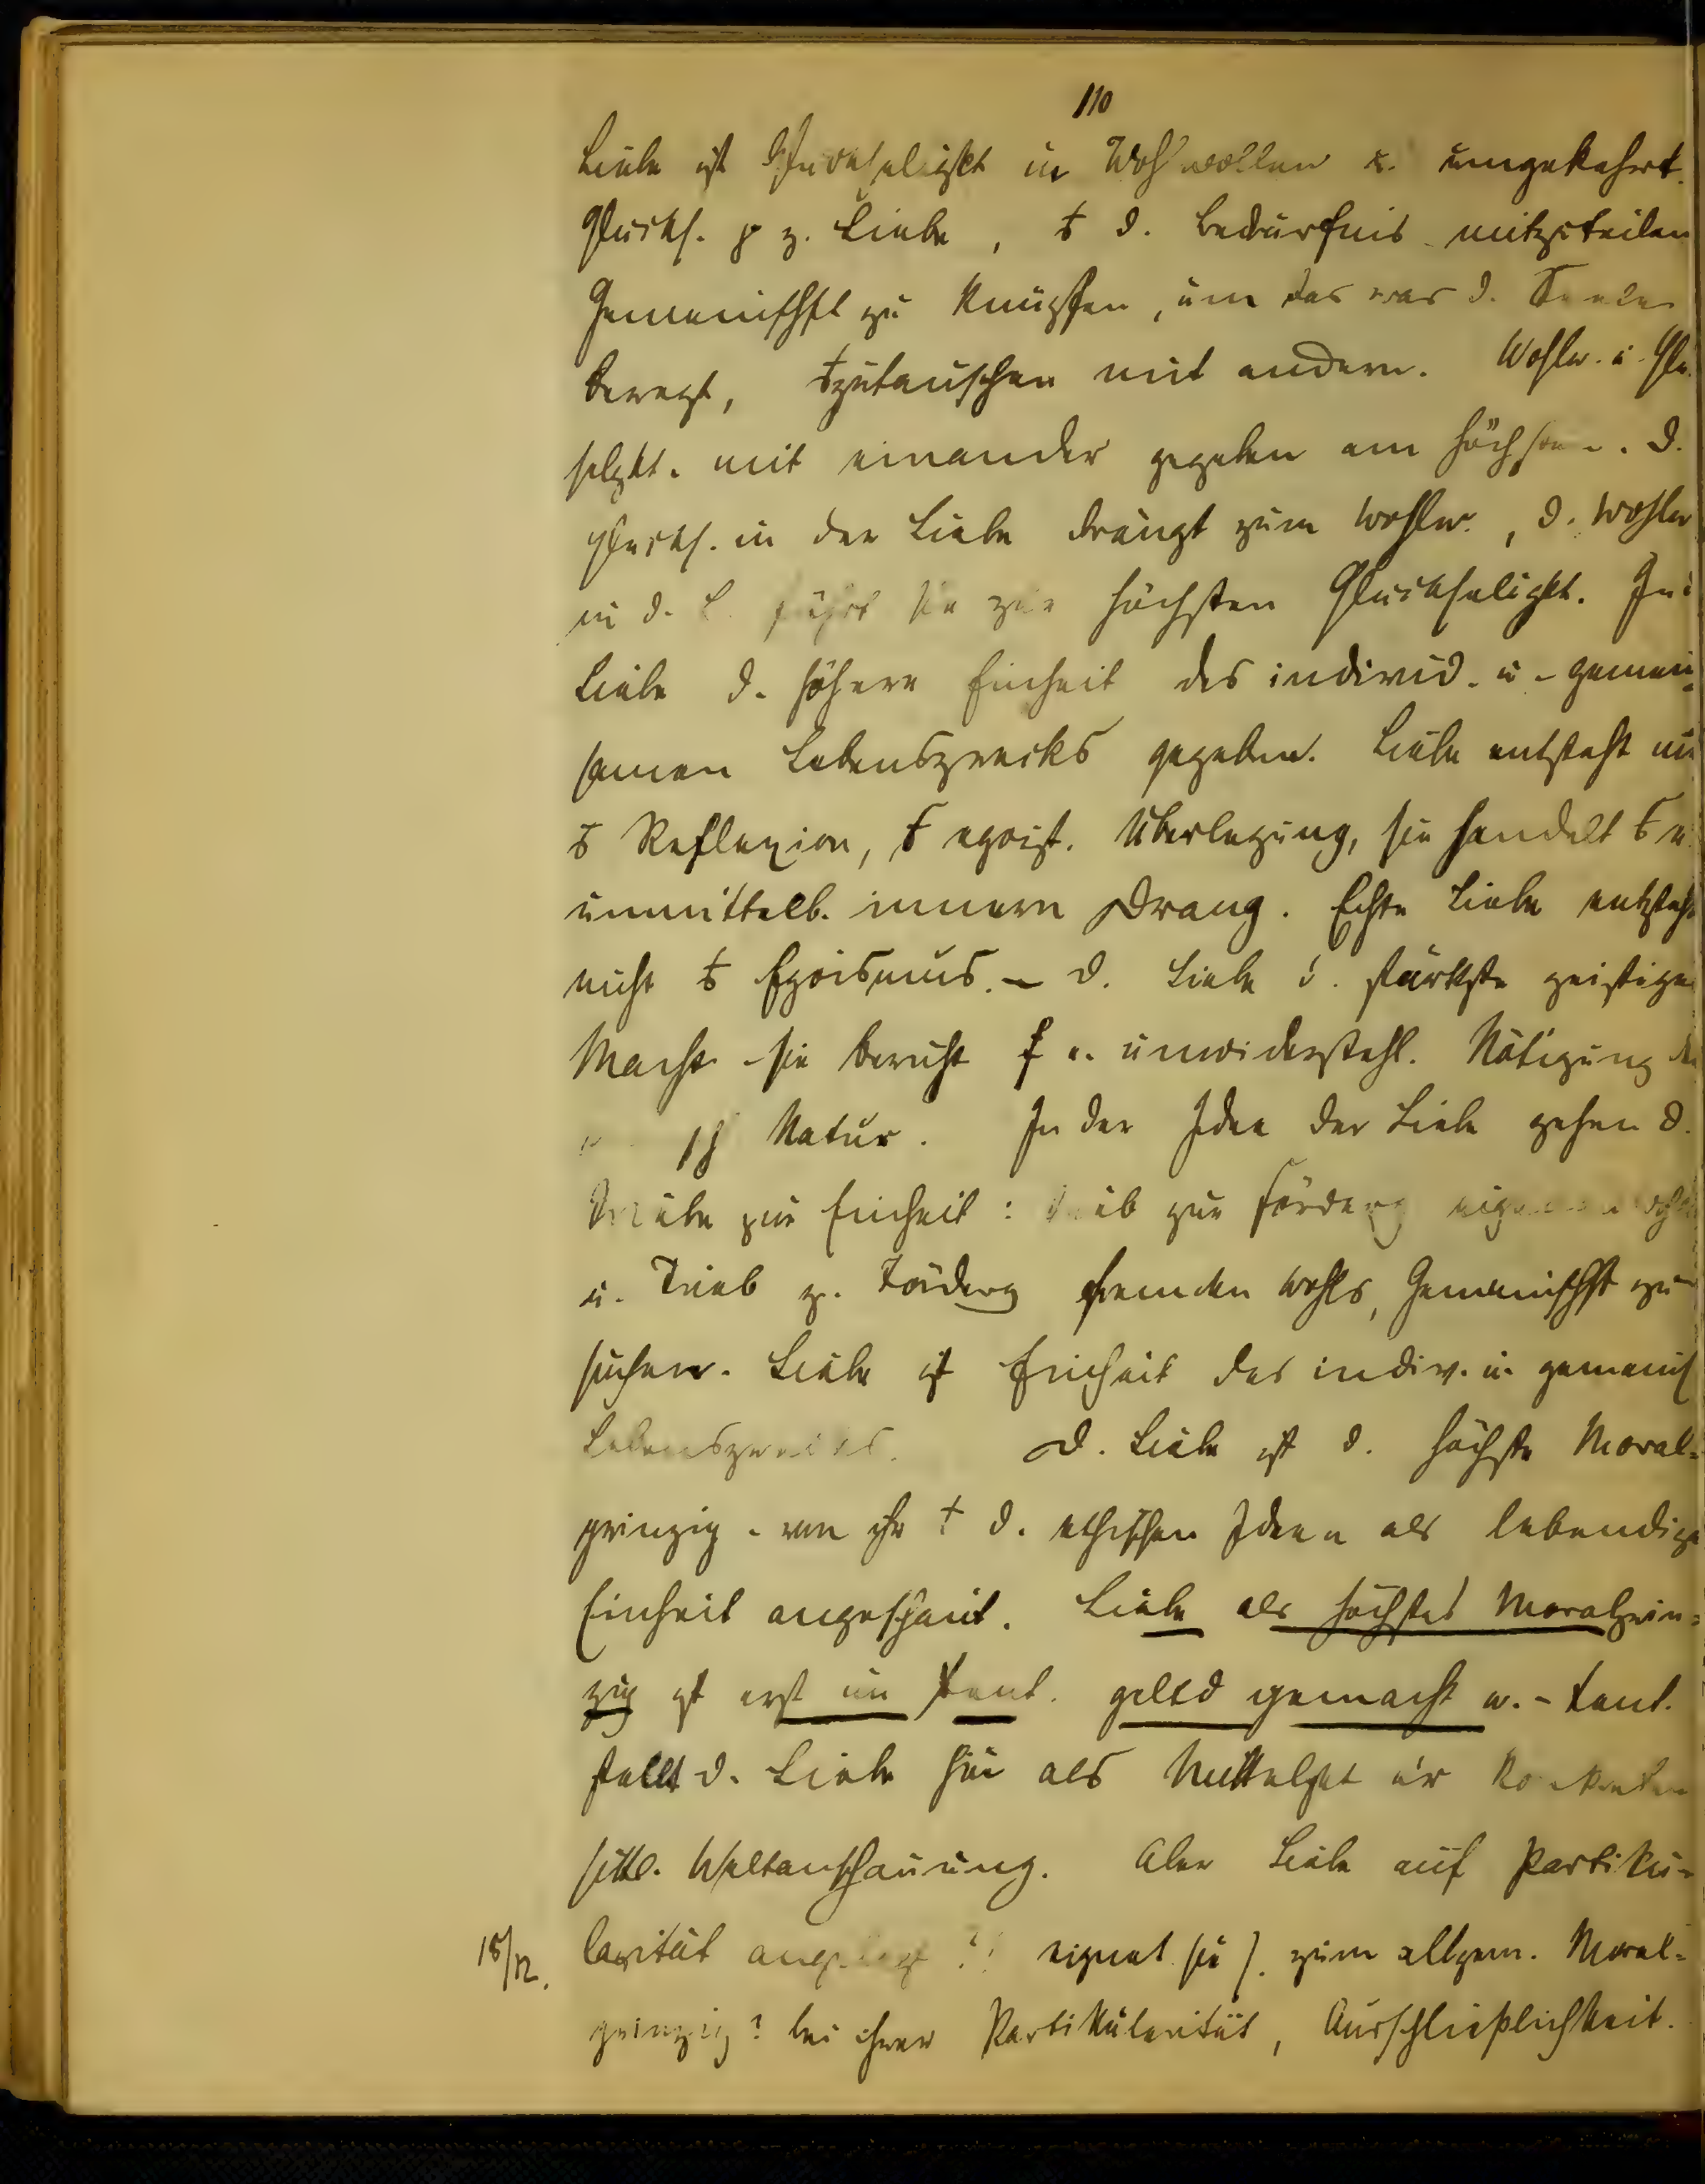 110
Liebe ist Glückseligkt in Wohlwollen u. umgekehrt.
Glücks. z. Liebe, d. Bedürfnis mitzuteilen
Gemeinschft zu knüpfen, um das was d. Seele
bewegt, zutauschen mit andern. Wohlw. u. Glü
selgkt. mit einander gegeben am höchsten. D.
Glücks. in der Liebe drängt zum Wohlw., d. Wohlw
in d. L. führt sie zur höchsten Glückseligkt. In d
Liebe d. höhere Einheit des individ. u. gemein-
samen Lebenszwecks gegeben. Liebe entsteht
Reflexion, egoist. Überlegung, sie handelt
unmittelb. innern Drang. Echte Liebe entsteht
nicht Egoismus. – D. Liebe i. stärkste geistige
Macht – sie beruht e. unwiderstehl. Nötigung der
Natur. In der Idee der Liebe gehen d.
Triebe zur Einheit: Trieb zur Förderg eigenen Wohls
u. Trieb z. Förderg fremden Wohls, Gemeinschft zu
suchen. Liebe ist Einheit des indiv. u. gemeins
Lebenszwecks. D. Liebe ist d. höchste Moral-
prinzip – von ihr d. ethischen Ideen als lebendige
Einheit angeschaut. Liebe als höchstes Moralprin-
zip ist erst im Xtent. geltd gemacht w. – Xtent.
stellt d. Liebe hin als Mittelpkt konkreten
sittl. Weltanschauung. Aber Liebe auf Partiku-
15/12. larität angelegt?! eignet sie s. zum allgem. Moral-
prinzip? bei ihrer Partikularität, Ausschließlichkeit.